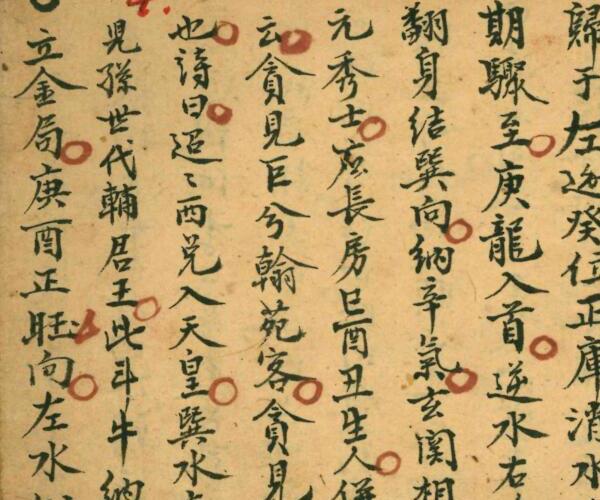 歸于左逆癸位正庫消水
期驟至庚龍入首逆水右
翻身結巽向納辛氣玄関相
元秀士應長房巳酉丑生人
云貪見巨兮翰苑客貪見
也詩曰迢〻西兌入天皇巽水
児孫世代輔君王此斗牛納
立金局庚酉正旺向左水